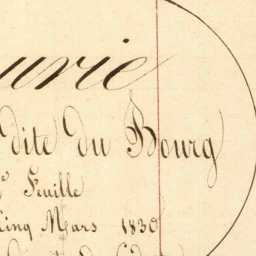 urie
dite du Bourg
e Feuille
Cinq Mars 1830